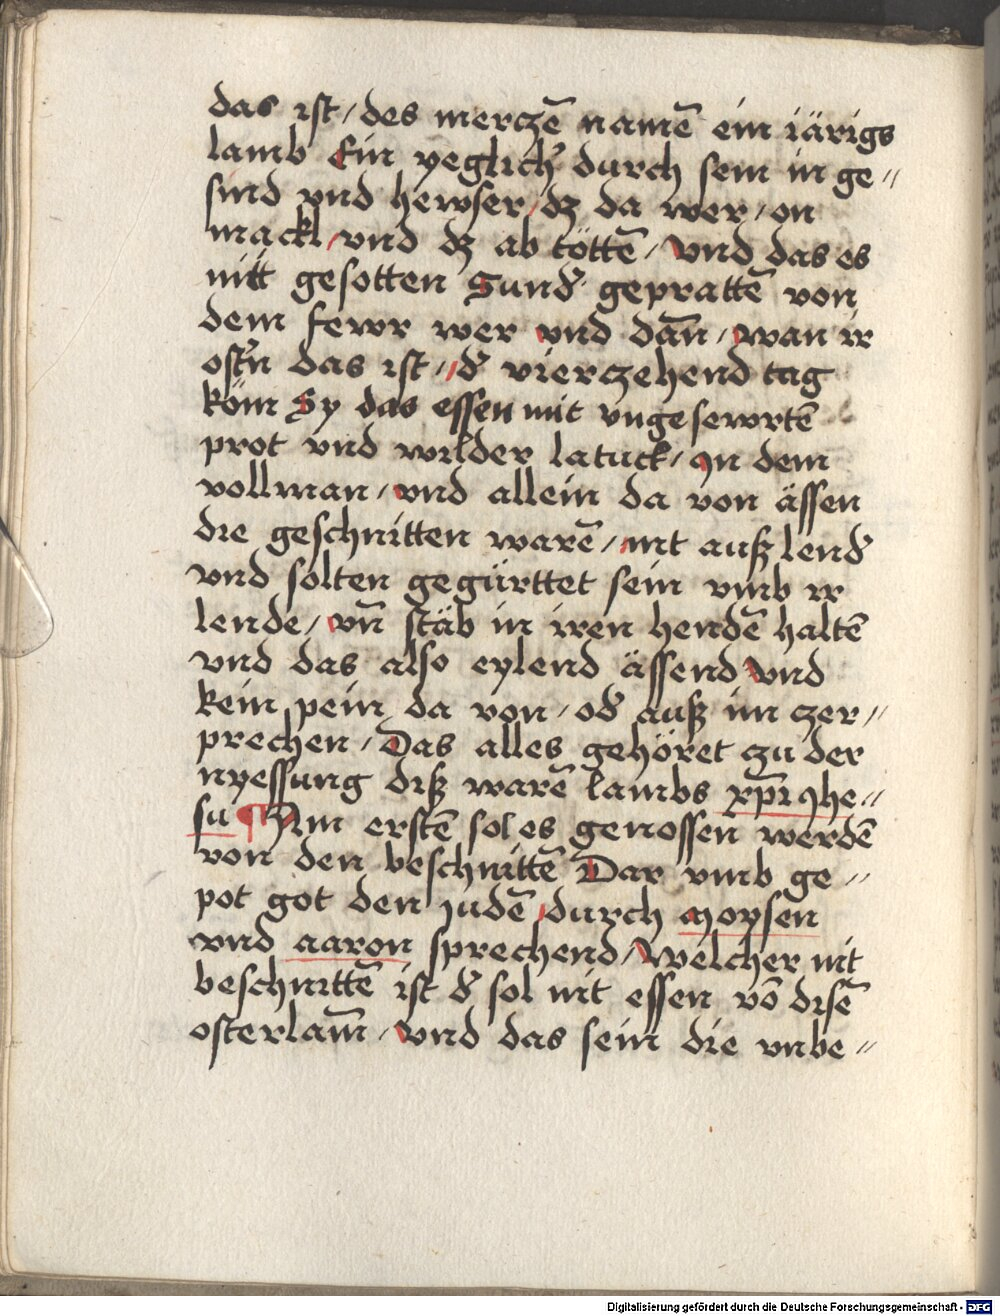 das ist / des merczē namē ein iärigs
lamb Ein yeglich' durch sein in ge⸗
sind vnd hewser / dz da wer / on
mackl / vnd dz ab töttē / Vnd das es
nitt gesotten Sund' geprattē von
dem fewr wer vnd dān / wan ir
ost'n das ist / d' vierczehend tag
köm Sy das essen mit vngesewrtē
prot vnd wilder latuck / In dem
vollman / vnd allein da von ässen
die geschnitten warē / nit außlend'
vnd solten gegürttet sein vmb ir
lende / vn̄ stäb in iren hendē haltē
vnd das also eylend ässend Vnd
kein pein da von / od' auß im czer⸗
prechen / Das alles gehöret czu der
nyessung diß warē lambs xp̄i Ihe⸗
su ¶ Am erstē sol es genossen werdē
von den beschnittē Dar vmb ge⸗
pot got den judē / durch moysen
vnd aaron sprechend / Welcher nit
beschnittē ist d' sol nit essen vō disē
osterlam̄ / Vnd das sein die vnbe⸗
Digitalisierung gefördert durch die Deutsche Forschungsgemeinschaft - DFG